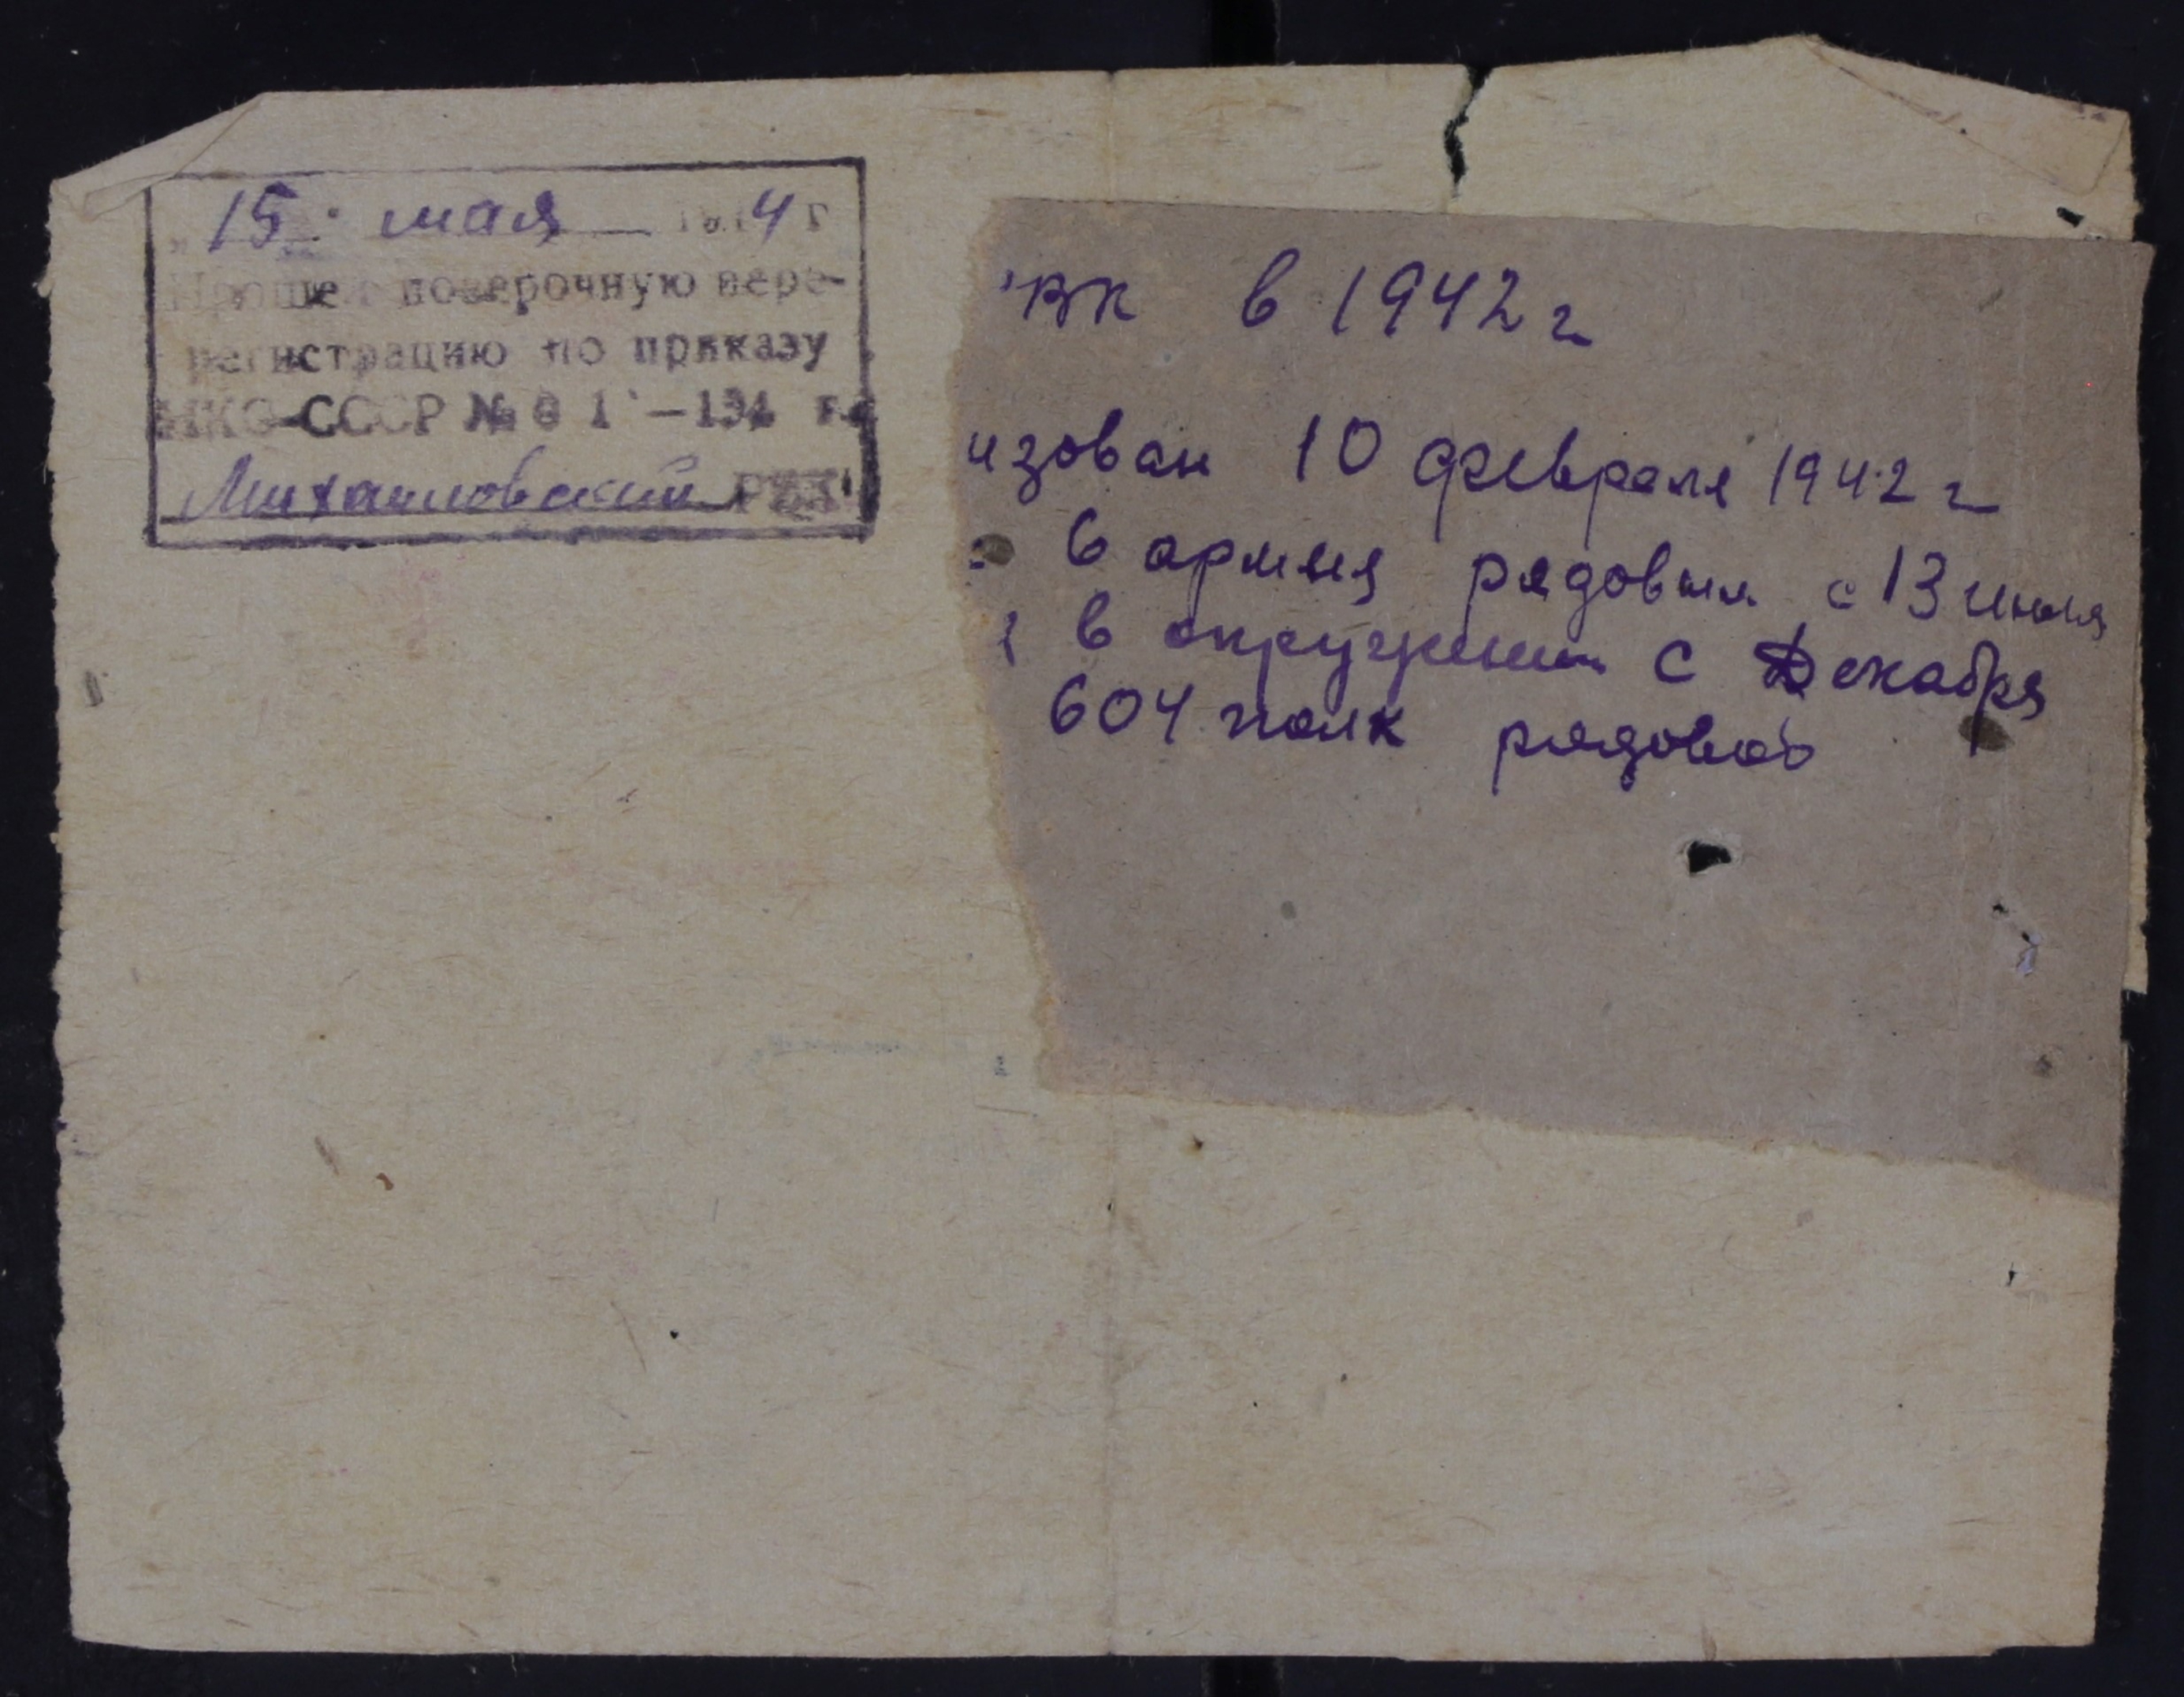 „ 15 " мая 1944 г
Прошел поверочную пере-
регистрацию по приказу
НКО-СССР № 0 1 —194 г.
Михайловский РВК
РВК в 1942 г
изован 10 февраля 1942 г
6 армия рядовым с 13 июля
в окружении с Декабря
604 полк рядовой